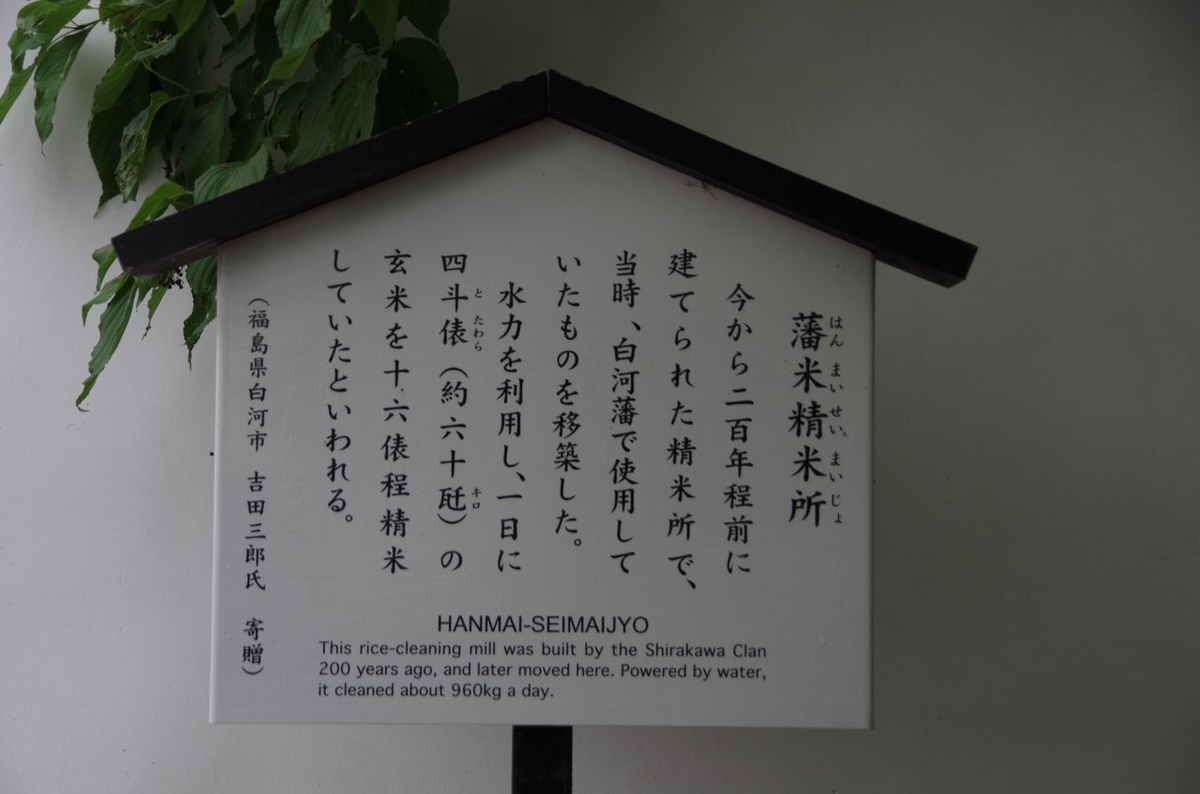 藩米精米所
はん まい せい まい じょ
今から二百年程前に
建てられた精米所で、
当時、白河藩で使用して
いたものを移築した。
水力を利用し、一日に
四斗俵（約六十瓩）の
と たわら キロ
玄米を十六俵程精米
していたといわれる。
（福島県白河市 吉田三郎氏 寄贈）
HANMAI-SEIMAIJYO
This rice-cleaning mill was built by the Shirakawa Clan
200 years ago, and later moved here. Powered by water,
it cleaned about 960kg a day.